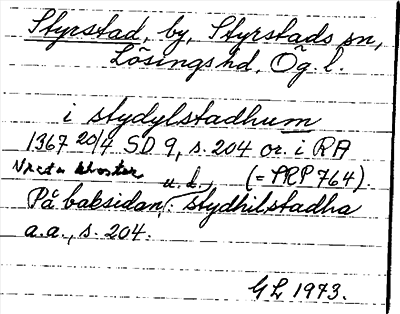 Styrstad, by, Styrstads sn,
Lösings hd, Ög. l.
i stydylstadhum
1367 20/4 SD 9, s. 204 or. i RA
Vreta kloster
u. d., (= PRP 764).
På baksidan: stydhilstadha
a.a., s. 204.
GL 1973.